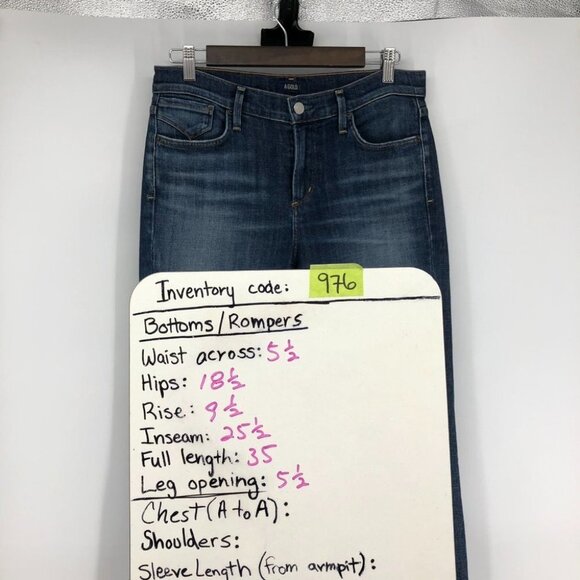 AGOLD
Inventory code: 976
Bottoms/Rompers
Waist across: 5 1/2
Hips: 18 1/2
Rise: 9 1/2
Inseam: 25 1/2
Full length: 35
Leg opening: 5 1/2
Chest (A to A):
Shoulders:
Sleeve Length (from armpit):